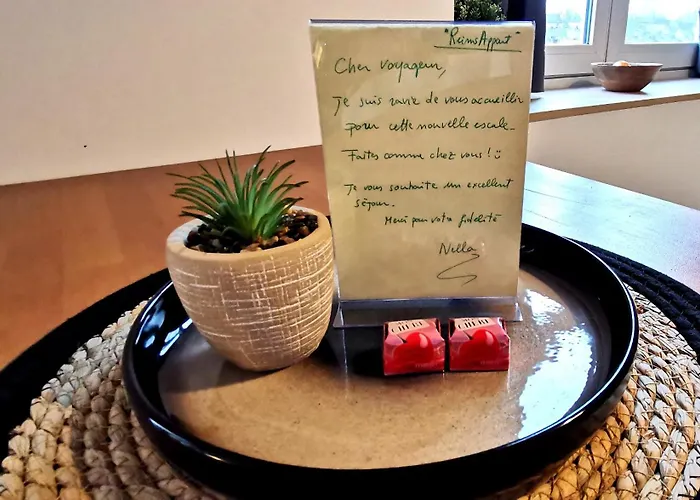 "ReimsAppart"
Cher voyageur,
Je suis ravie de vous accueillir
pour cette nouvelle escale.
Faites comme chez vous ! :)
Je vous souhaite un excellent
séjour.
Merci pour votre fidélité
Nella
CHÉRI
CHÉRI